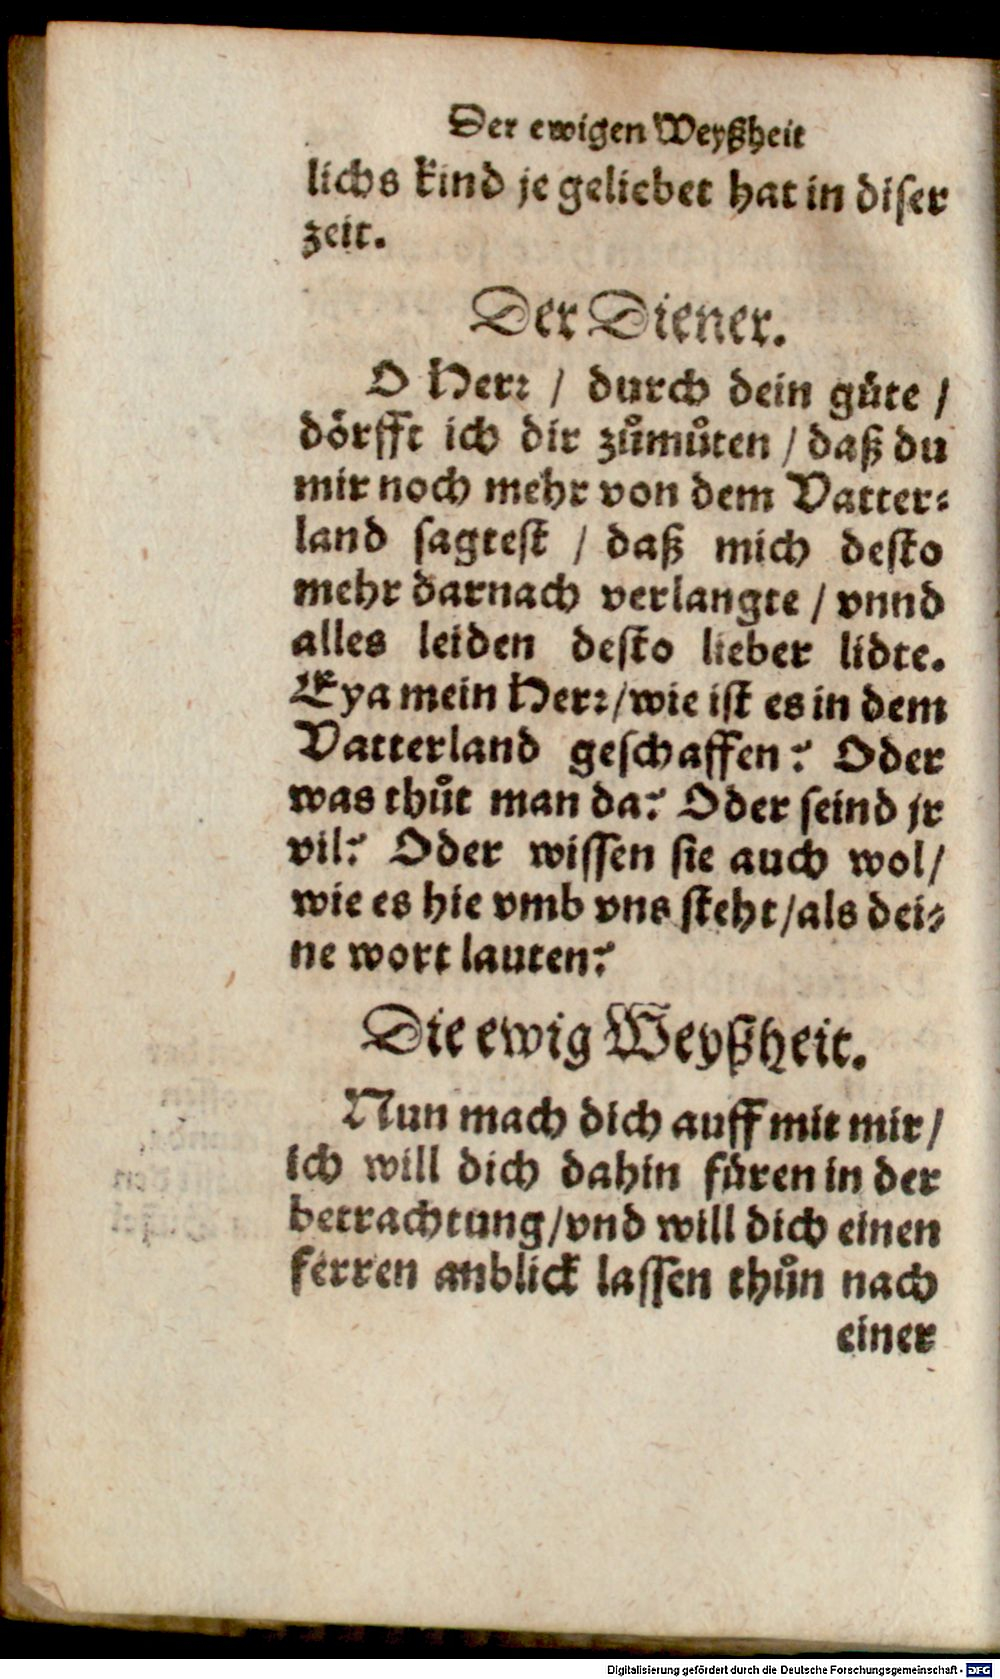 Der ewigen Weyßheit
lichs kind je geliebet hat in diser
zeit.
Der Diener.
O Herr / durch dein güte /
dörfft ich dir zůmůten / daß du
mir noch mehr von dem Vatter-
land sagtest / daß mich desto
mehr darnach verlangte / vnnd
alles leiden desto lieber lidte.
Eya mein Herr / wie ist es in dem
Vatterland geschaffen? Oder
was thůt man da? Oder seind jr
vil? Oder wissen sie auch wol /
wie es hie vmb vns steht / als dei-
ne wort lauten?
Die ewig Weyßheit.
Nun mach dich auff mit mir /
ich will dich dahin füren in der
betrachtung / vnd will dich einen
ferren anblick lassen thůn nach
einer
Digitalisierung gefördert durch die Deutsche Forschungsgemeinschaft - DFG